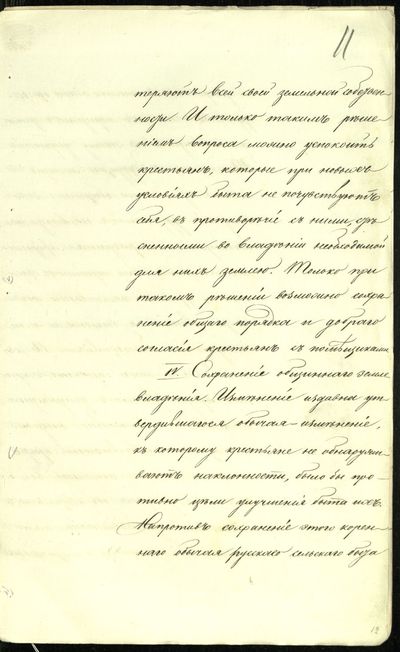 11
теряютъ всей своей земельной собствен-
ности. И только такимъ реше-
ніемъ вопроса можно успокоить
крестьянъ, которые при новыхъ
условіяхъ быта не почувствуютъ
себя, въ противоречіе съ ними, стѣ-
сненными во владѣніи необходимой
для нихъ землею. Только при
такомъ рѣшеніи возможно сохра-
неніе общаго порядка и добраго
согласія крестьянъ съ помѣщиками.
IV. Сохраненіе общиннаго земле-
владѣнія. Измѣненіе издавна ут-
вердившагося обычая – измѣненіе,
къ которому крестьяне не обнаружи-
ваютъ наклонности, было бы про-
тивно цѣли улучшенія быта ихъ.
Напротивъ сохраненіе этого корен-
наго обычая русскаго сельскаго быта
12